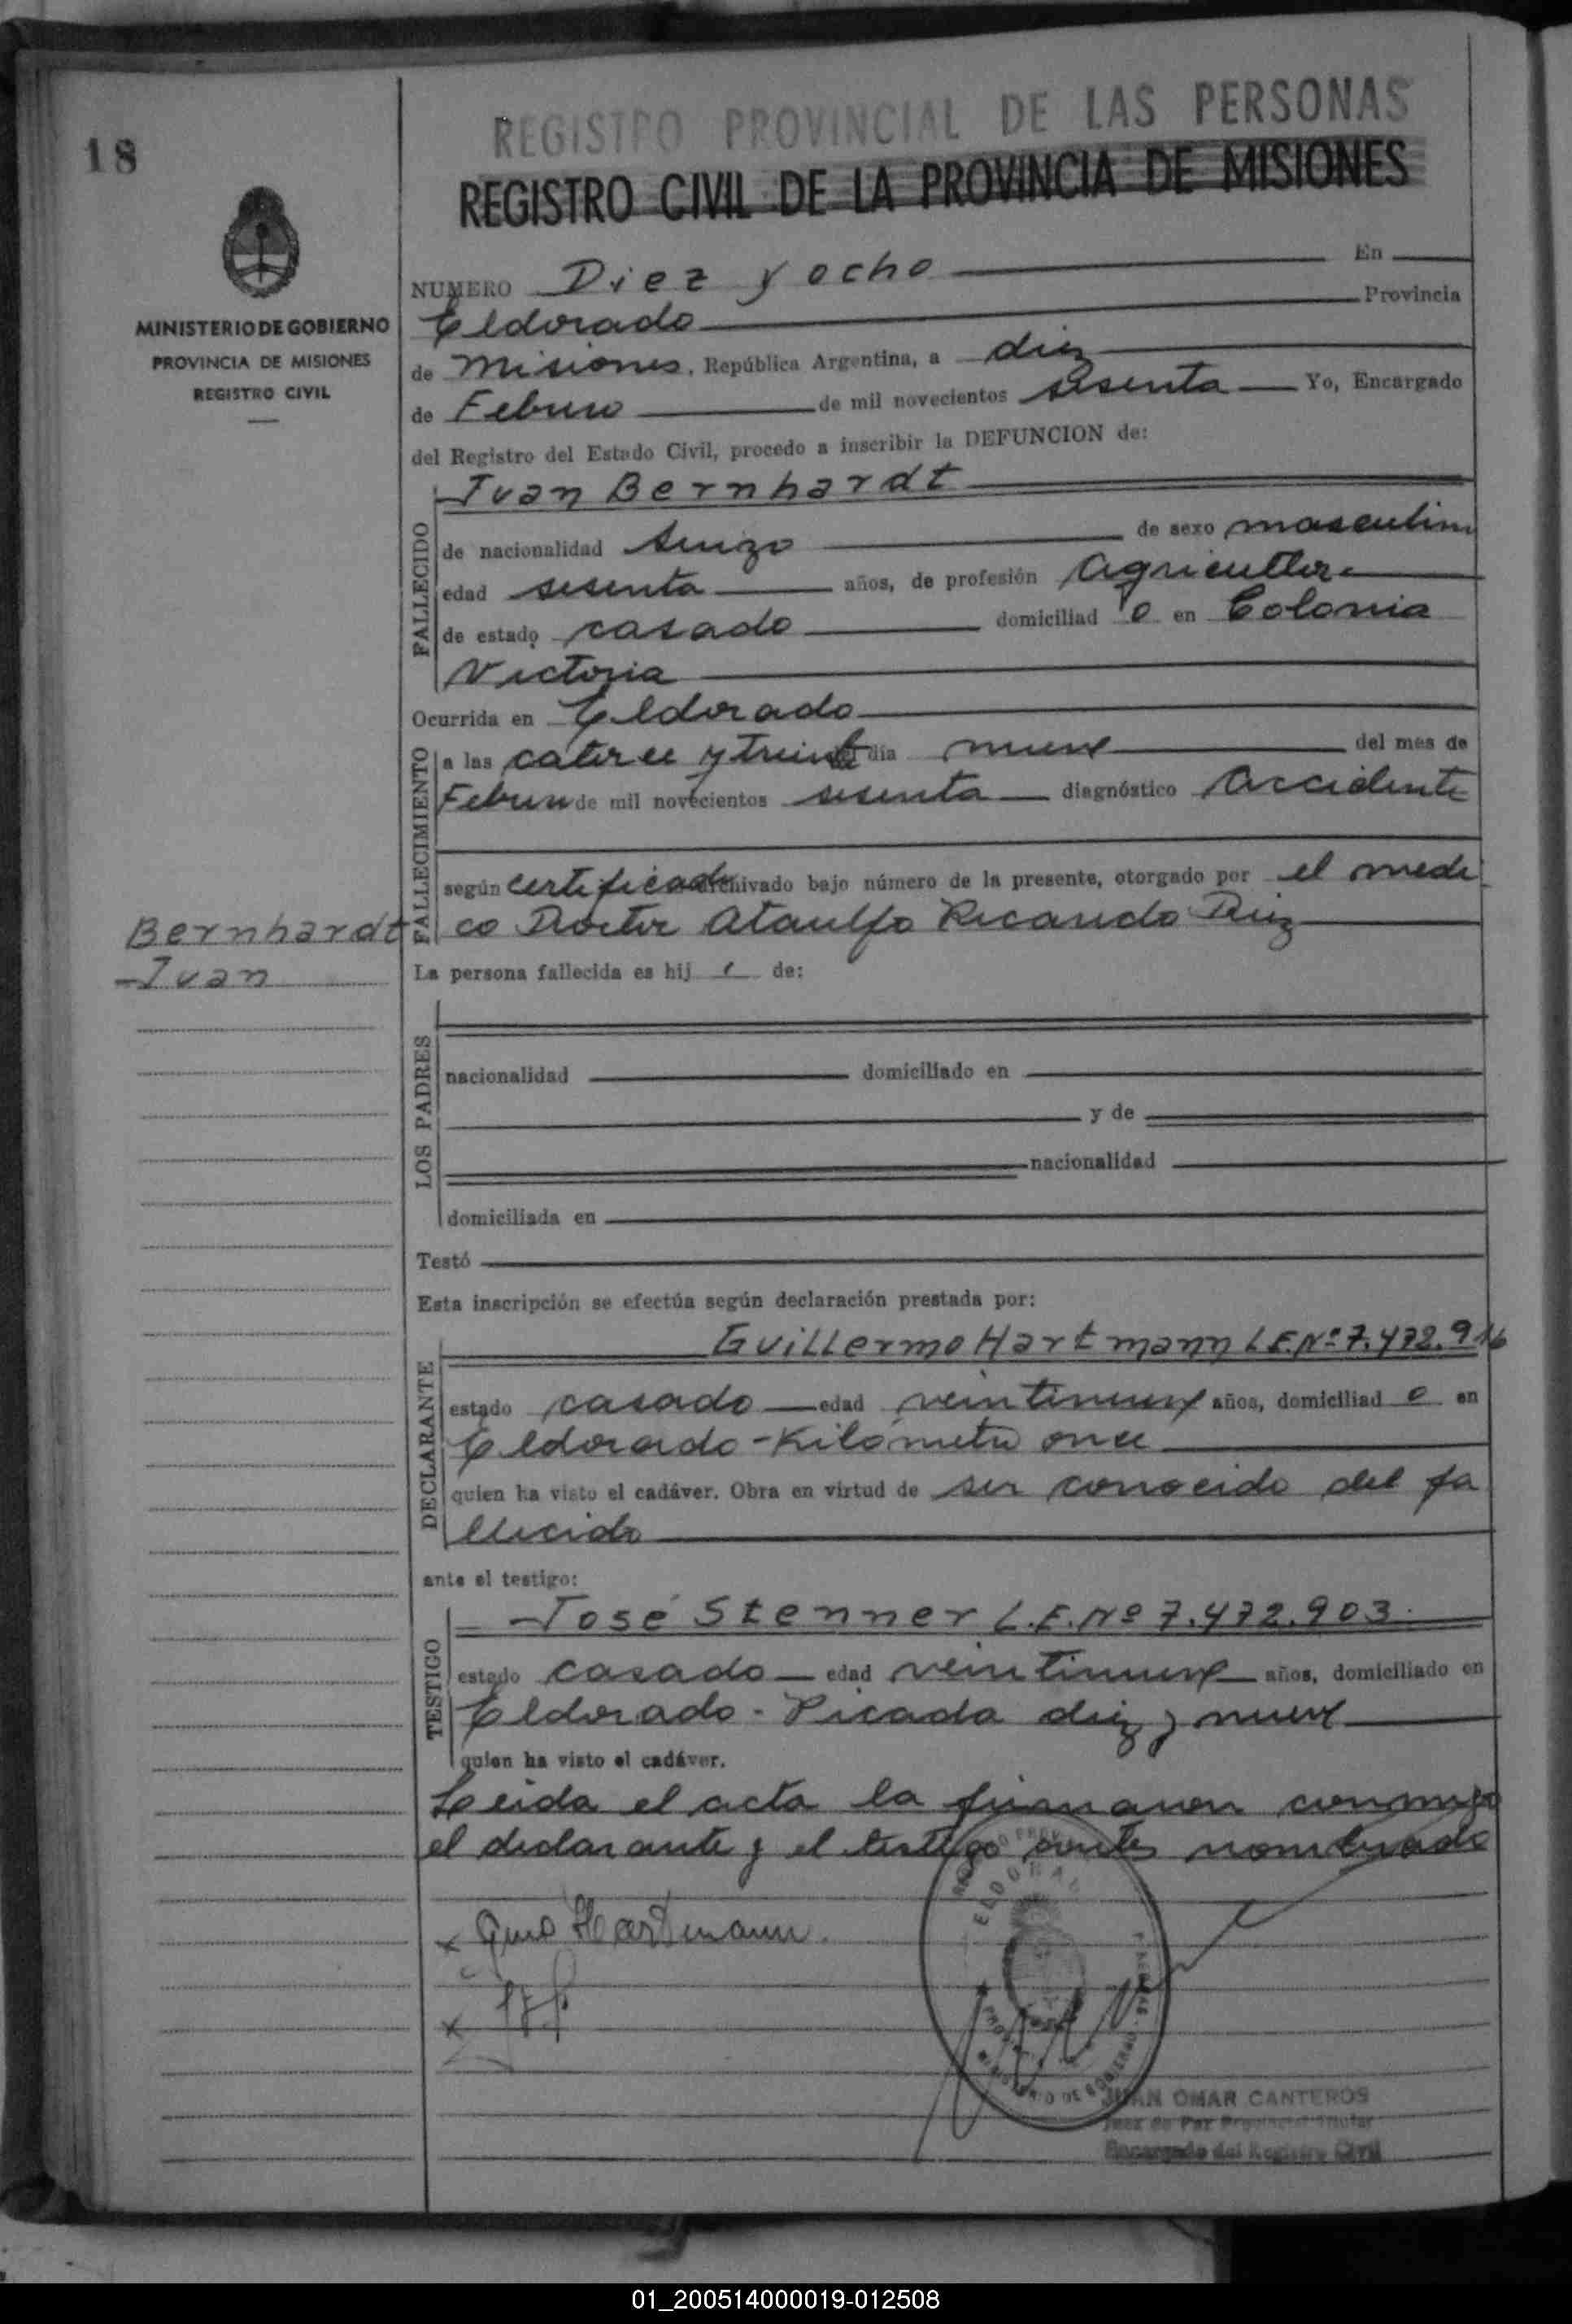 18
REGISTRO PROVINCIAL DE LAS PERSONAS
REGISTRO CIVIL DE LA PROVINCIA DE MISIONES
MINISTERIO DE GOBIERNO
PROVINCIA DE MISIONES
REGISTRO CIVIL
NUMERO Diez y ocho En
Eldorado Provincia
de Misiones, República Argentina, a diez
de Febrero de mil novecientos sesenta Yo, Encargado
del Registro del Estado Civil, procedo a inscribir la DEFUNCION de:
FALLECIDO
Ivan Bernhardt
de nacionalidad Suizo de sexo masculino
edad sesenta años, de profesión Agricultor
de estado casado domiciliad o en Colonia
Victoria
Ocurrida en Eldorado
FALLECIMIENTO
a las catorce y treinta día nueve del mes de
Febrero de mil novecientos sesenta diagnóstico Accidente
según certificado archivado bajo número de la presente, otorgado por el medi
co Doctor Ataulfo Ricardo Ruiz
Bernhardt
Ivan
La persona fallecida es hij de:
LOS PADRES
nacionalidad domiciliado en
y de
nacionalidad
domiciliada en
Testó
Esta inscripción se efectúa según declaración prestada por:
DECLARANTE
Guillermo Hartmann L.E.Nº 7.472.916
estado casado edad veintinueve años, domiciliad o en
Eldorado - Kilómetro once
quien ha visto el cadáver. Obra en virtud de ser conocido del fa
llecido
ante el testigo:
TESTIGO
José Stenner L.E.Nº 7.472.903.
estado casado edad veintinueve años, domiciliado en
Eldorado - Picada diez y nueve
quien ha visto el cadáver.
Leida el acta la firmaron conmigo
el declarante y el testigo antes nombrado
x Gmo Hartmann.
x
ELDORADO
MINISTERIO DE GOBIERNO
JUAN OMAR CANTEROS
Juez de Paz Provincial Titular
Encargado del Registro Civil
01_200514000019-012508